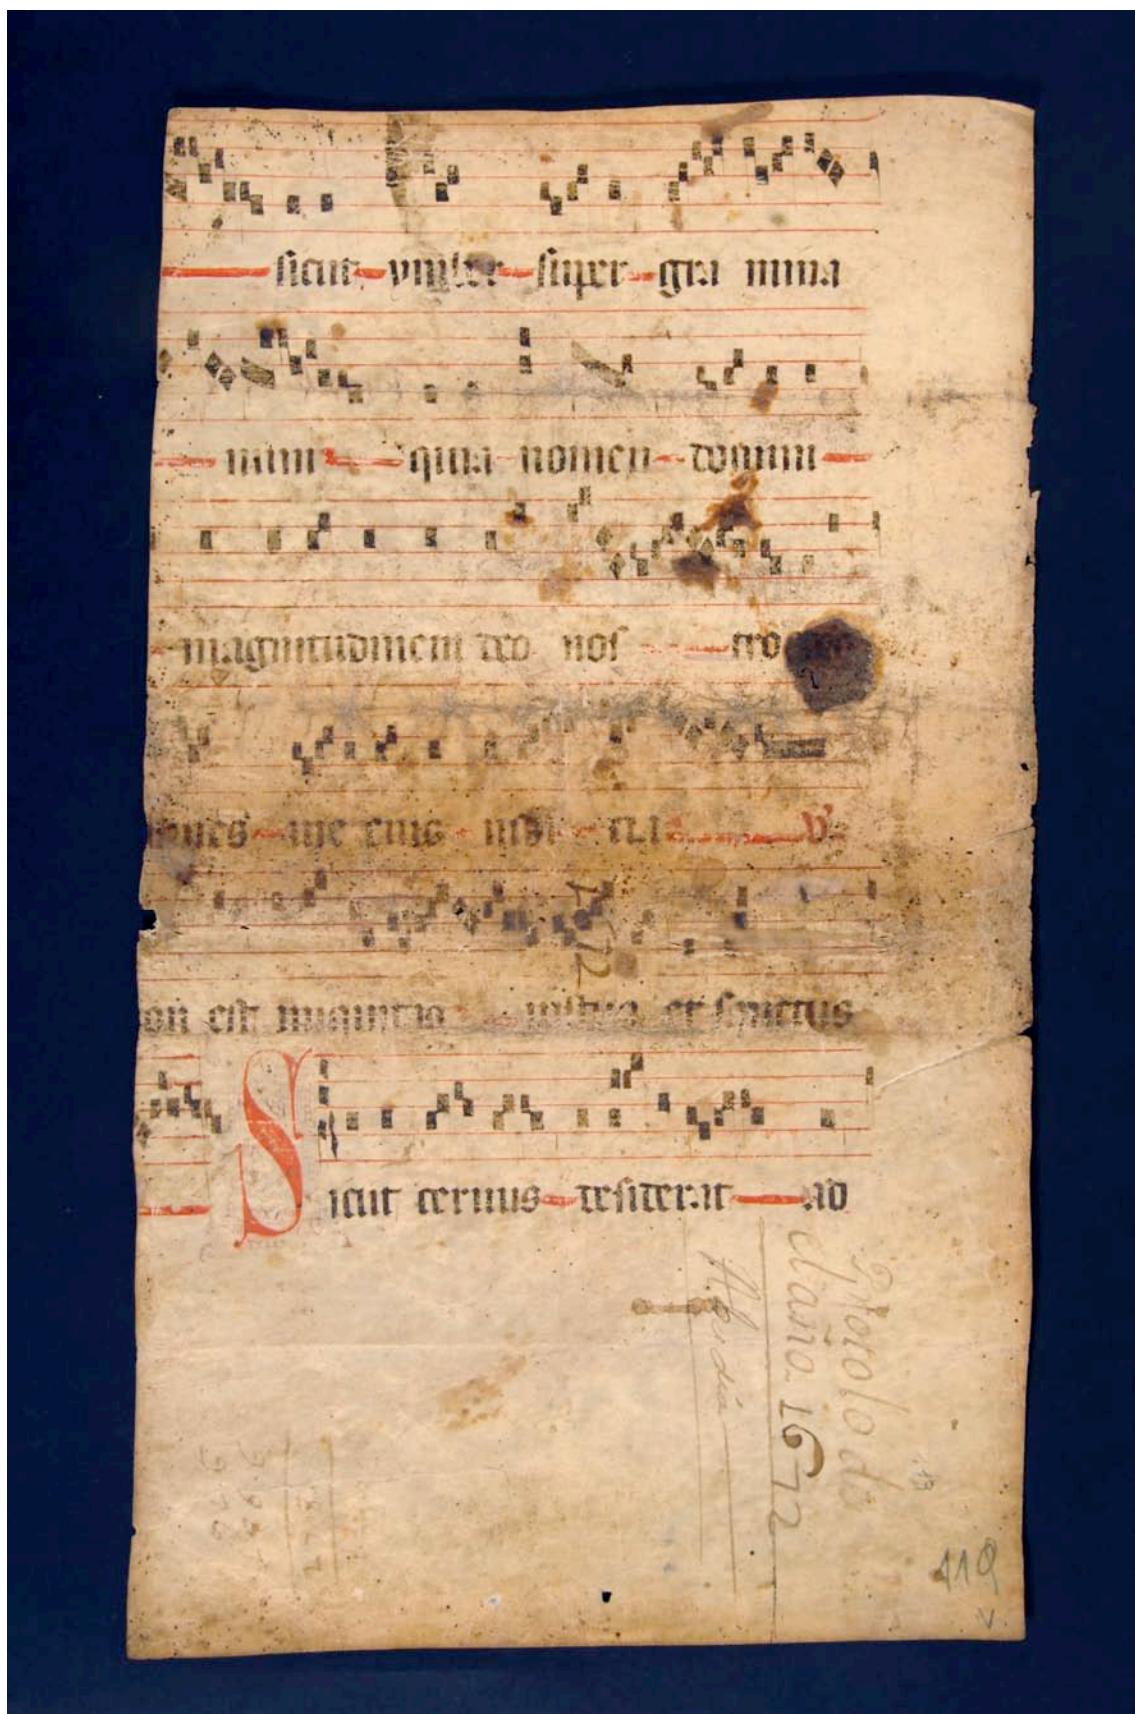 sicut ymber super gra mina
nimi quia nomen domini
magnitudinem deo nos tro
omnes uie eius iudi cia ℣
on est iniquitas iustus et sanctus
Sicut ceruus desiderat ad
1672
Protocolo de
el año 1672
119
v